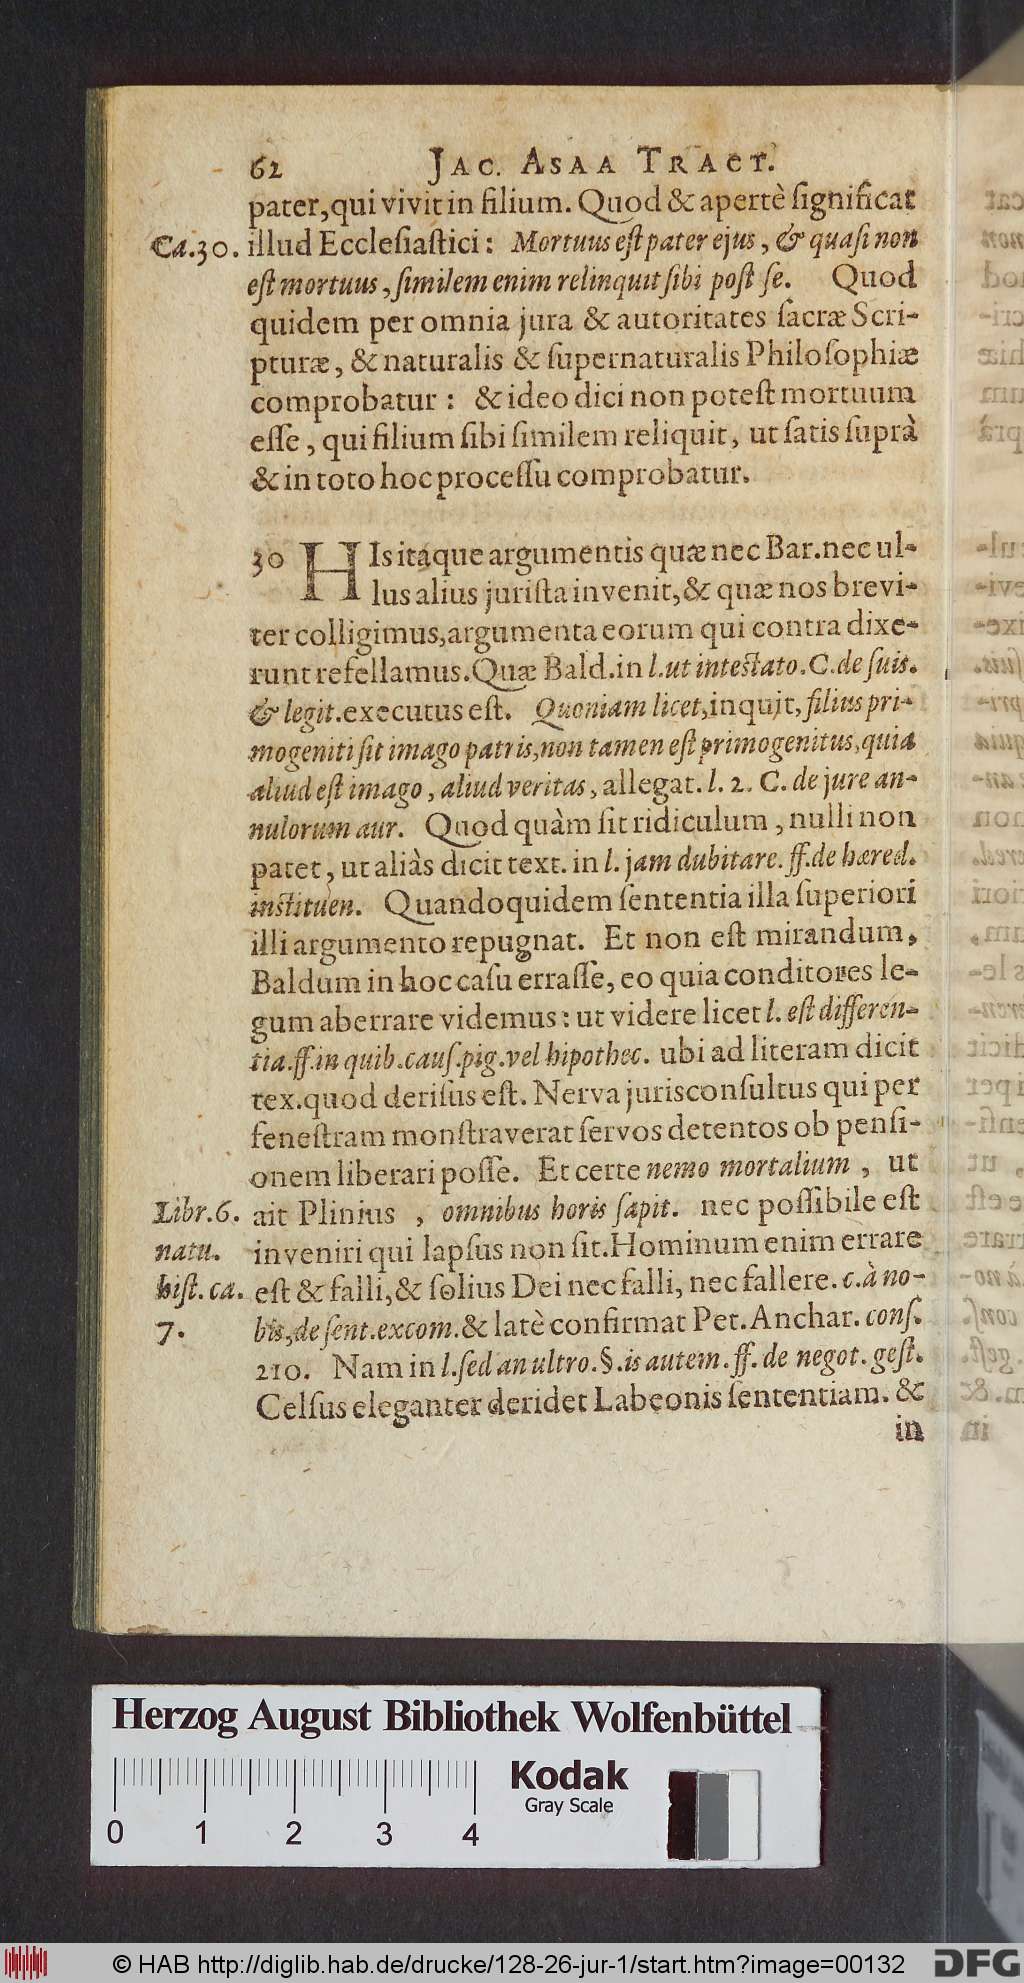 62 JAC. ASAA TRACT.
pater, qui vivit in filium. Quod & apertè ſignificat
Ca.30. illud Eccleſiaſtici: Mortuus eſt pater ejus, & quaſi non
eſt mortuus, ſimilem enim relinquit ſibi poſt ſe. Quod
quidem per omnia jura & autoritates ſacræ Scri-
pturæ, & naturalis & ſupernaturalis Philoſophiæ
comprobatur: & ideo dici non poteſt mortuum
eſſe, qui filium ſibi ſimilem reliquit, ut ſatis ſuprà
& in toto hoc proceſſu comprobatur.
30 HIs itaque argumentis quæ nec Bar. nec ul-
lus alius juriſta invenit, & quæ nos brevi-
ter colligimus, argumenta eorum qui contra dixe-
runt refellamus. Quæ Bald. in l. ut inteſtato. C. de ſuis.
& legit. executus eſt. Quoniam licet, inquit, filius pri-
mogeniti ſit imago patris, non tamen eſt primogenitus, quia
aliud eſt imago, aliud veritas, allegat. l. 2. C. de jure an-
nulorum aur. Quod quàm ſit ridiculum, nulli non
patet, ut aliàs dicit text. in l. jam dubitare. ff. de hæred.
inſtituen. Quandoquidem ſententia illa ſuperiori
illi argumento repugnat. Et non eſt mirandum,
Baldum in hoc caſu erraſſe, eo quia conditores le-
gum aberrare videmus: ut videre licet l. eſt differen-
tia. ff. in quib. cauſ. pig. vel hipothec. ubi ad literam dicit
tex. quod deriſus eſt. Nerva jurisconſultus qui per
feneſtram monſtraverat ſervos detentos ob penſi-
onem liberari poſſe. Et certe nemo mortalium, ut
Libr. 6. ait Plinius, omnibus horis ſapit. nec poſſibile eſt
natu. inveniri qui lapſus non ſit. Hominum enim errare
hiſt. ca. eſt & falli, & ſolius Dei nec falli, nec fallere. c. à no-
7. bis, de ſent. excom. & latè confirmat Pet. Anchar. conſ.
210. Nam in l. ſed an ultro. §. is autem. ff. de negot. geſt.
Celſus eleganter deridet Labeonis ſententiam. &
in
Herzog August Bibliothek Wolfenbüttel
Kodak
Gray Scale
0 1 2 3 4
© HAB http://diglib.hab.de/drucke/128-26-jur-1/start.htm?image=00132
DFG